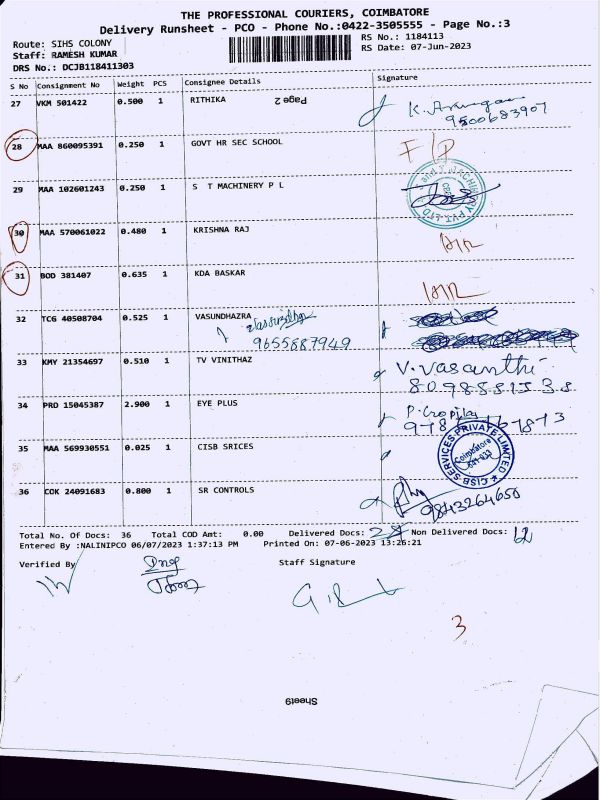 THE PROFESSIONAL COURIERS, COIMBATORE
Delivery Runsheet - PCO - Phone No.:0422-3505555 - Page No.:3
Route: SIHS COLONY
RS No.: 1184113
Staff: RAMESH KUMAR
RS Date: 07-Jun-2023
DRS No.: DCJB118411303
S No Consignment No Weight PCS Consignee Details Signature
27 VKM 501422 0.500 1 RITHIKA Page 2
9500683907
28 MAA 860095391 0.250 1 GOVT HR SEC SCHOOL
29 MAA 102601243 0.250 1 S T MACHINERY P L
30 MAA 570061022 0.480 1 KRISHNA RAJ
31 BOD 381407 0.635 1 KDA BASKAR
32 TCG 40508704 0.525 1 VASUNDHAZRA
9655887949
33 KMY 21354697 0.510 1 TV VINITHAZ V. Vasanthi
8098581538
34 PRO 15045387 2.900 1 EYE PLUS
35 MAA 569930551 0.025 1 CISB SRICES
CISB SERVICES PRIVATE LIMITED
Coimbatore
36 COK 24091683 0.800 1 SR CONTROLS 9843264650
Total No. Of Docs: 36 Total COD Amt: 0.00 Delivered Docs: Non Delivered Docs: 12
Entered By :NALINIPCO 06/07/2023 1:37:13 PM Printed On: 07-06-2023 13:26:21
Verified By Staff Signature
3
Sheet9